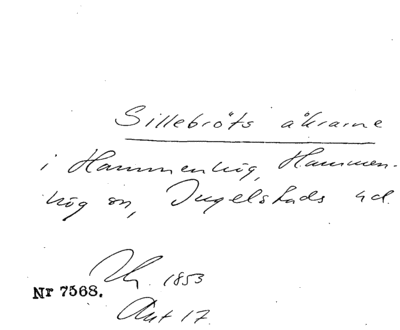 Sillebröts åkrarne
i Hammenhög, Hammen-
hög sn, Ingelstads hd.
1853
Nr 7568.
Akt 17